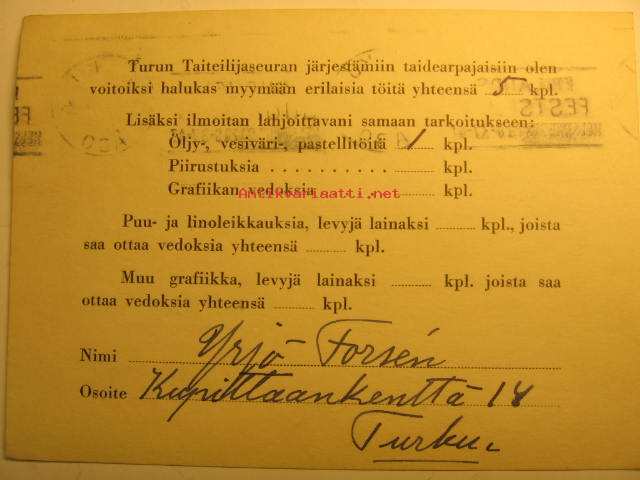 Turun Taiteilijaseuran järjestämiin taidearpajaisiin olen
voitoiksi halukas myymään erilaisia töitä yhteensä 5 kpl.
Lisäksi ilmoitan lahjoittavani samaan tarkoitukseen:
Öljy-, vesiväri-, pastellitöitä 1 kpl.
Piirustuksia .......... kpl.
Grafiikan vedoksia ..... kpl.
Antikvariaatti.net
Puu- ja linoleikkauksia, levyjä lainaksi ......... kpl., joista
saa ottaa vedoksia yhteensä ......... kpl.
Muu grafiikka, levyjä lainaksi ......... kpl. joista saa
ottaa vedoksia yhteensä ......... kpl.
Nimi Yrjö Forsén
Osoite Kupittaankenttä 14
Turku.